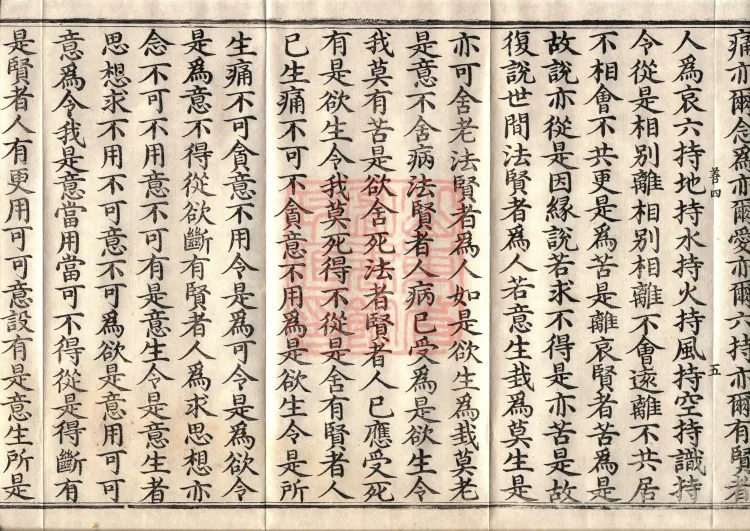 痛亦爾念為亦爾愛亦爾六持亦爾有賢者
人為哀六持地持水持火持風持空持識持
四 五
令從是相別離相別相離不會遠離不共居
不相會不共更是為苦是離哀賢者苦為是
故說亦從是因緣說若求不得是亦苦是故
復說世間法賢者為人若意生㦲為莫生是
亦可舍老法賢者為人如是欲生為㦲莫老
是意不舍病法賢者人病已受為是欲生令
我莫有苦是欲舍死法者賢者人已應受死
有是欲生令我莫死得不從是舍有賢者人
已生痛不可不貪意不用為是欲生令是所
生痛不可貪意不用令是為可令是為欲令
是為意不得從欲斷有賢者人為求思想亦
念不可不用意不可有是意生令是意生者
思想求不用不可意不可為欲是意用可可
意為令我是意當用當可不得從是得斷有
是賢者人有更用可可意設有是意生所是